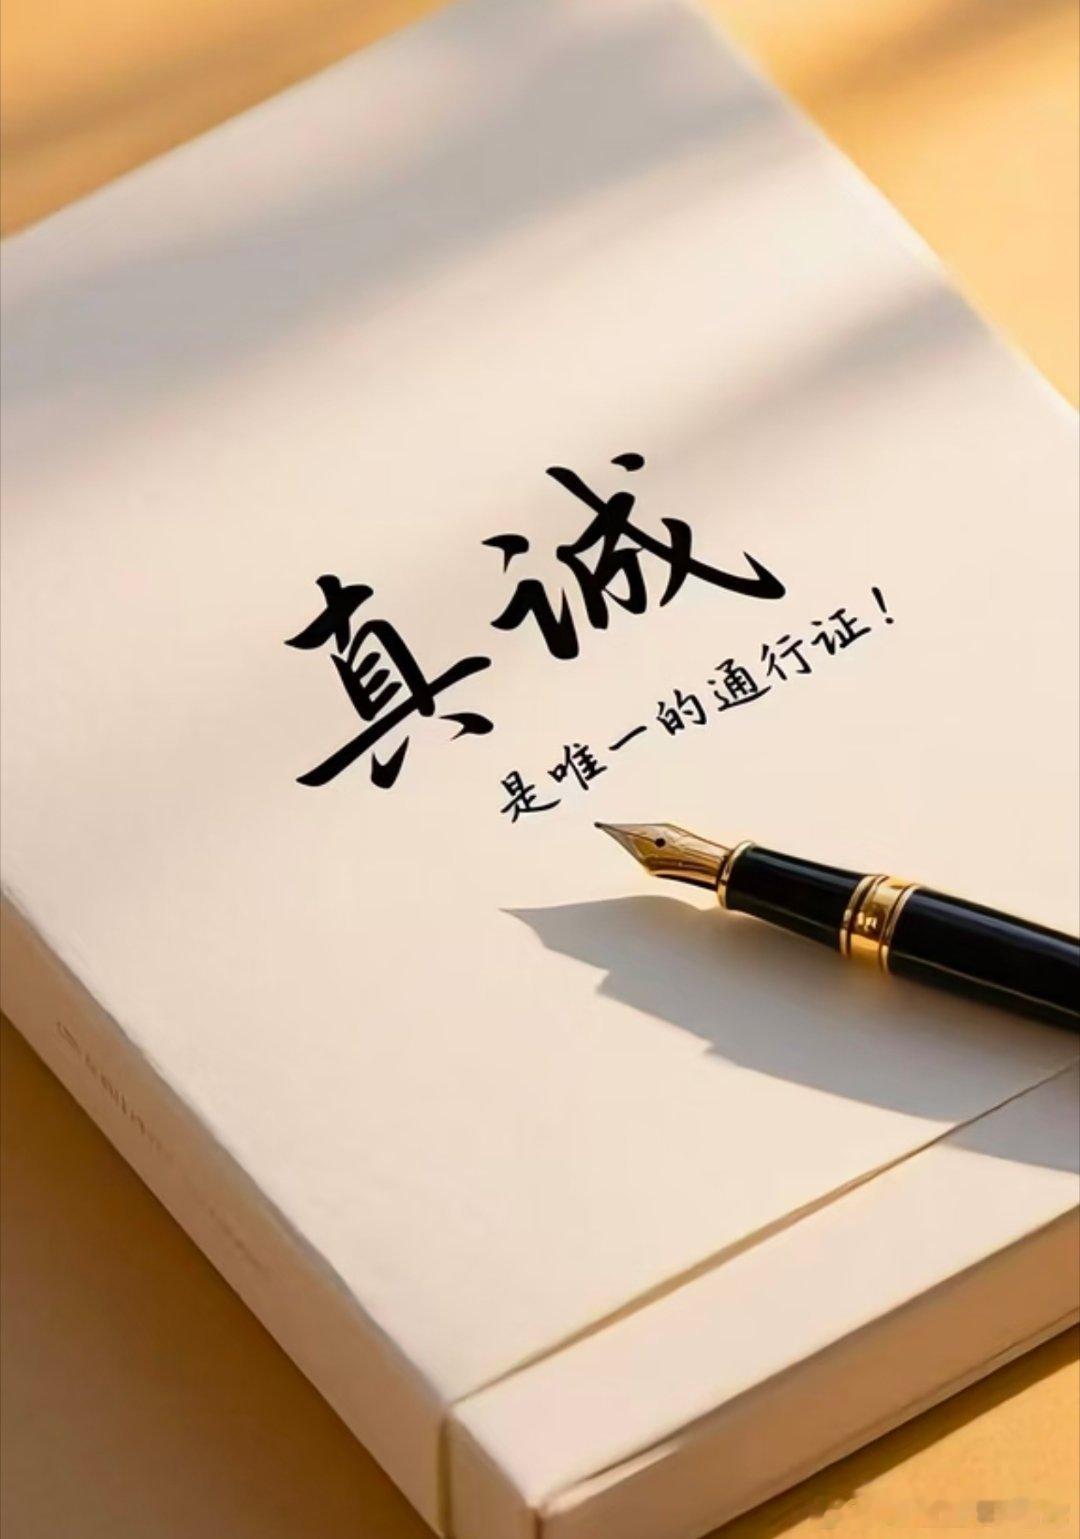 真诚
是唯一的通行证!